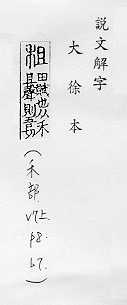 説文解字
大徐本
租 田賦也从禾
且聲則吾切
(禾部 V7上. p8. b7.)